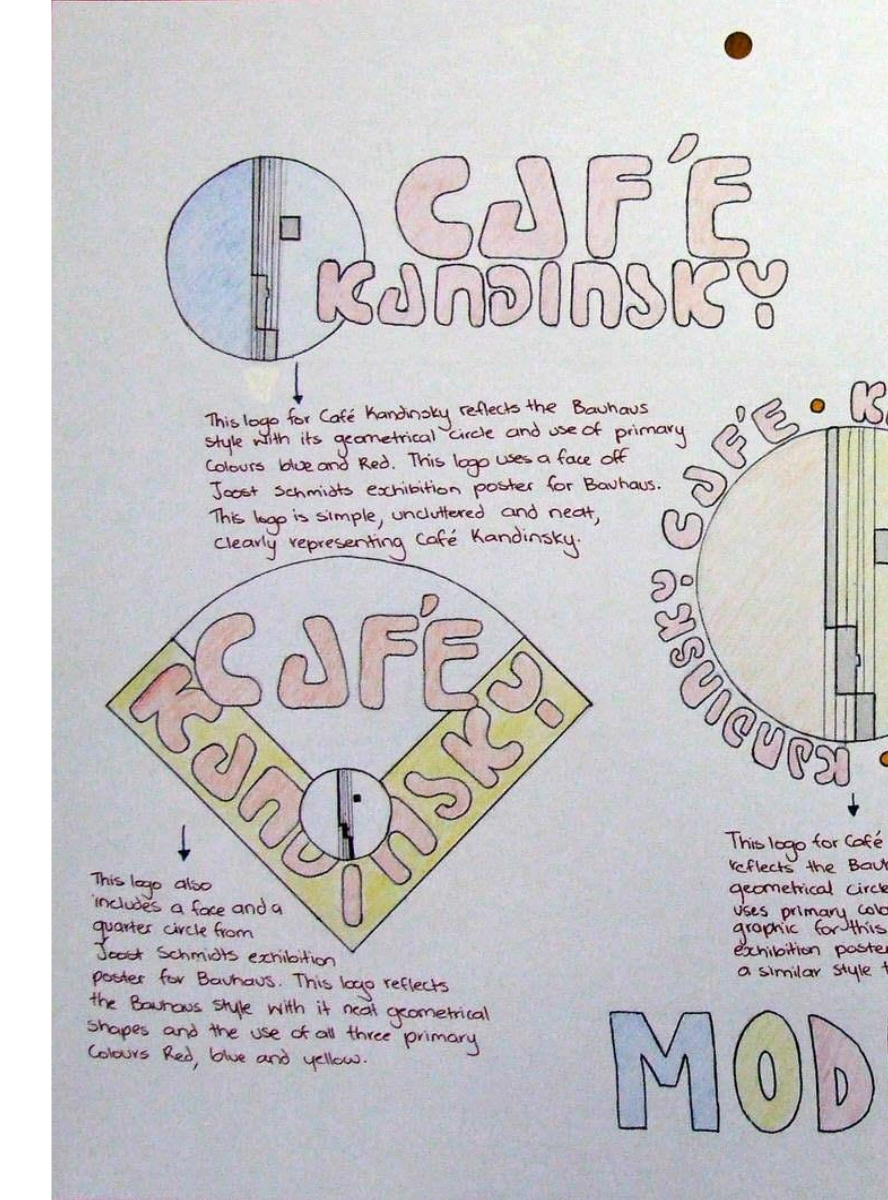 CAFÉ
KANDINSKY
This logo for Café Kandinsky reflects the Bauhaus
style with its geometrical circle and use of primary
Colours blue and Red. This logo uses a face off
Joost Schmidts exhibition poster for Bauhaus.
This logo is simple, uncluttered and neat,
clearly representing Café Kandinsky.
CAFÉ
KANDINSKY
This logo also
includes a face and a
quarter circle from
Joost Schmidts exhibition
poster for Bauhaus. This logo reflects
the Bauhaus style with it neat geometrical
shapes and the use of all three primary
Colours Red, blue and yellow.
KANDINSKY • CAFÉ •
This logo for Café
reflects the
geometrical circle
uses primary
graphic for this
exhibition poster
a similar style
MOD